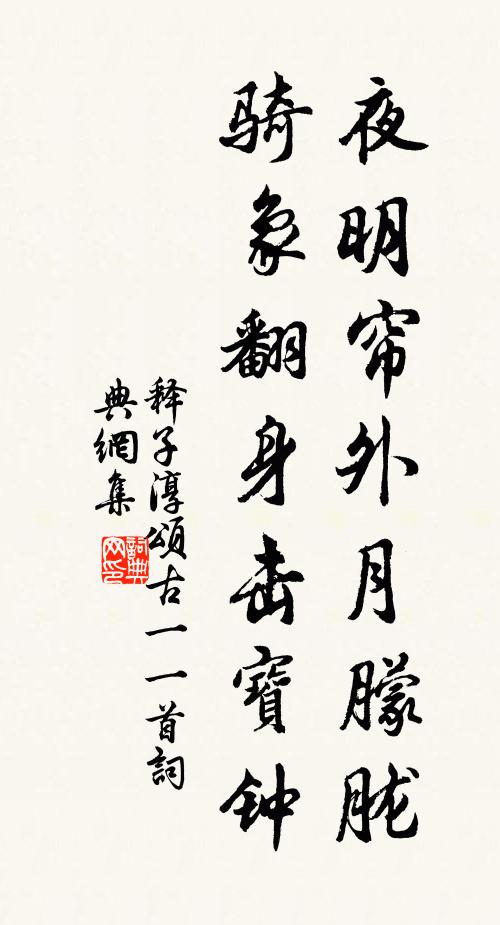 夜明帘外月朦胧
骑象翻身击寶钟
释子淳頌古一一首詞
典網集
詞典网印